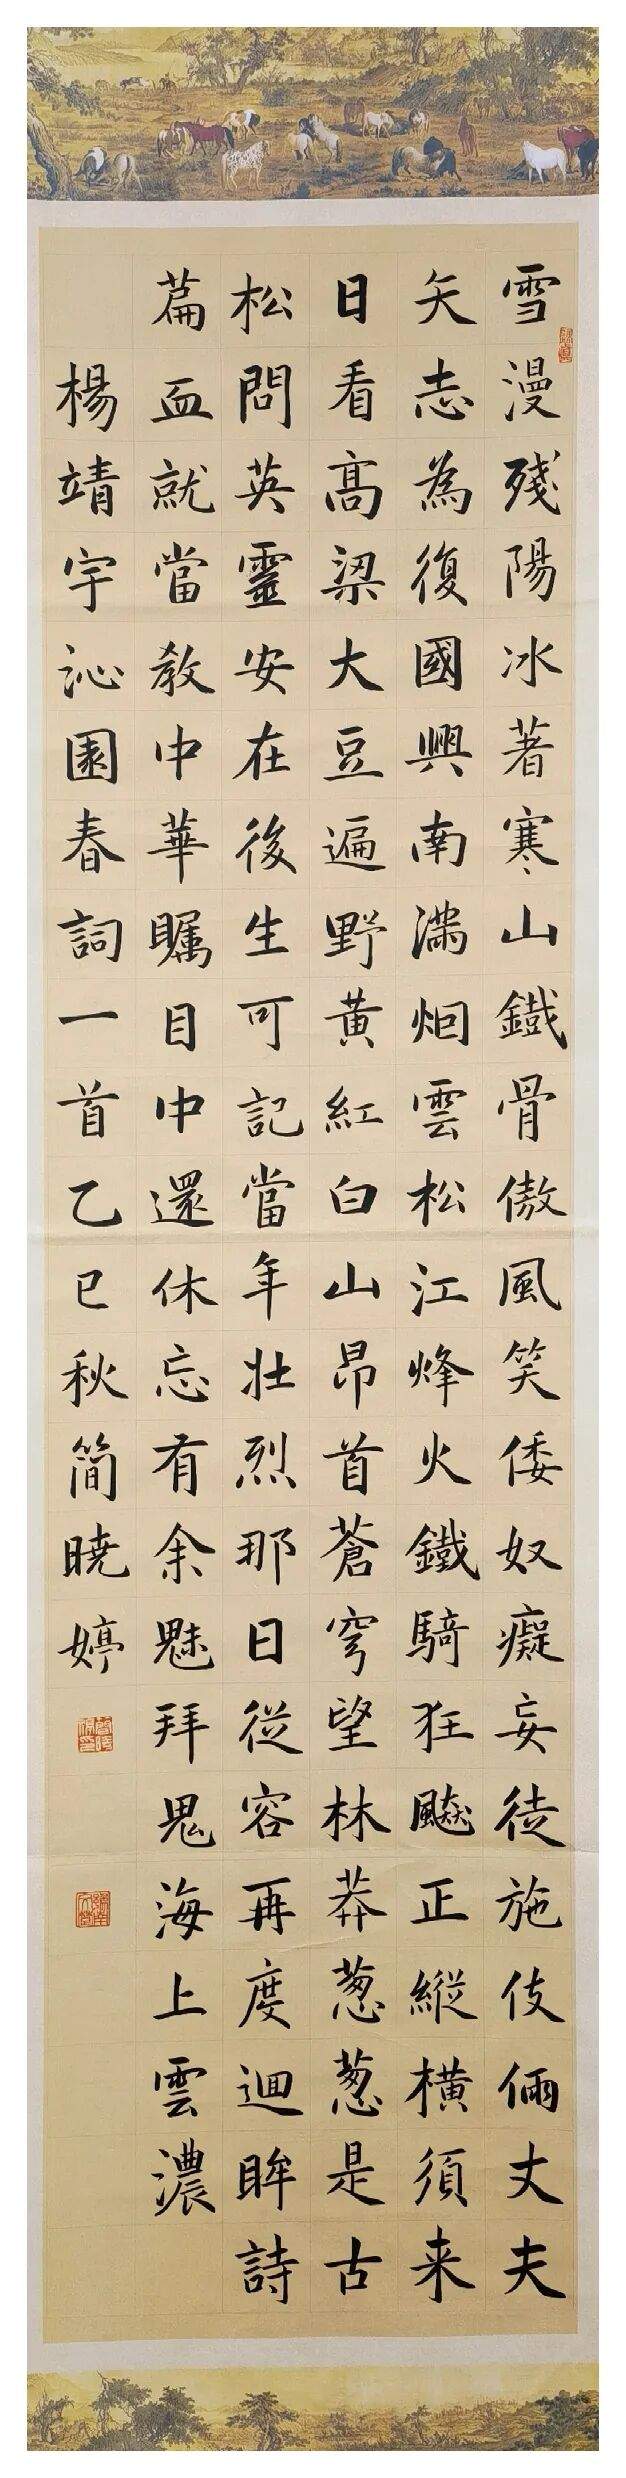 雪漫殘陽冰著寒山鐵骨傲風笑倭奴癡妄徒施伎倆丈夫
矢志為復國興南滿烟雲松江烽火鐵騎狂飈正縱橫須来
日看高梁大豆遍野黃紅白山昂首蒼穹望林莽蔥蔥是古
松問英靈安在後生可記當年壯烈那日從容再度迴眸詩
篇血就當教中華矚目中還休忘有余魅拜鬼海上雲濃
楊靖宇沁園春詞一首乙巳秋簡曉婷